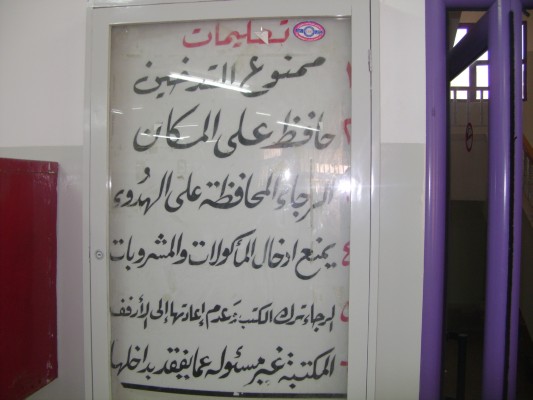 تعليمات
ممنوع التدخين
٢ حافظ على المكان
الرجاء المحافظة على الهدوء
٤ يمنع ادخال المأكولات والمشروبات
٥ الرجاء ترك الكتب وعدم إعادتها إلى الأرفف
المكتبة غير مسئولة عما يفقد بداخلها